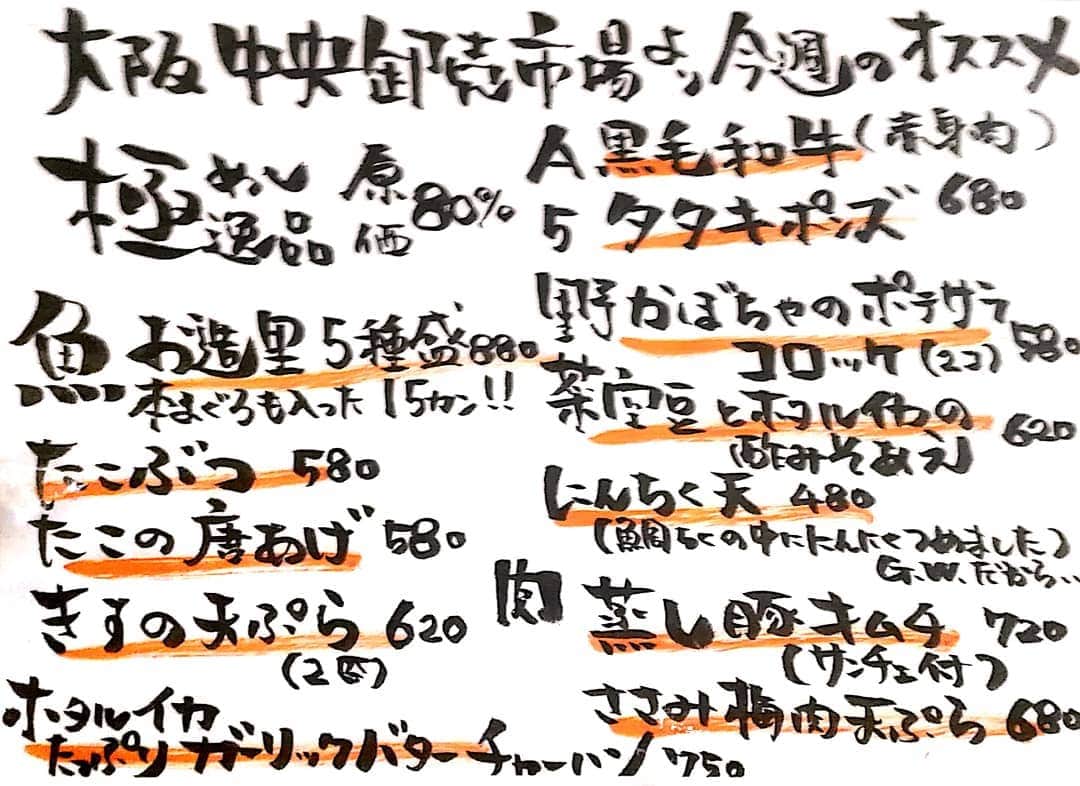 大阪中央卸売市場より今週のオススメ
極めし逸品 原価80%
A5 黒毛和牛(赤身肉)
タタキポンズ 680
魚 お造里5種盛 880
本まぐろも入った15カン!!
たこぶつ 580
たこの唐あげ 580
きすの天ぷら 620
(2匹)
ホタルイカ
たっぷりガーリックバターチャーハン 750
野菜 かぼちゃのポテサラ
コロッケ(2コ) 580
空豆とホタルイカの
(酢みそあえ) 620
にんちく天 480
(鯛ちくの中ににんにくつめました)
G.W.だから..
肉 蒸し豚キムチ 720
(サンチェ付)
ささみ梅肉天ぷら 680